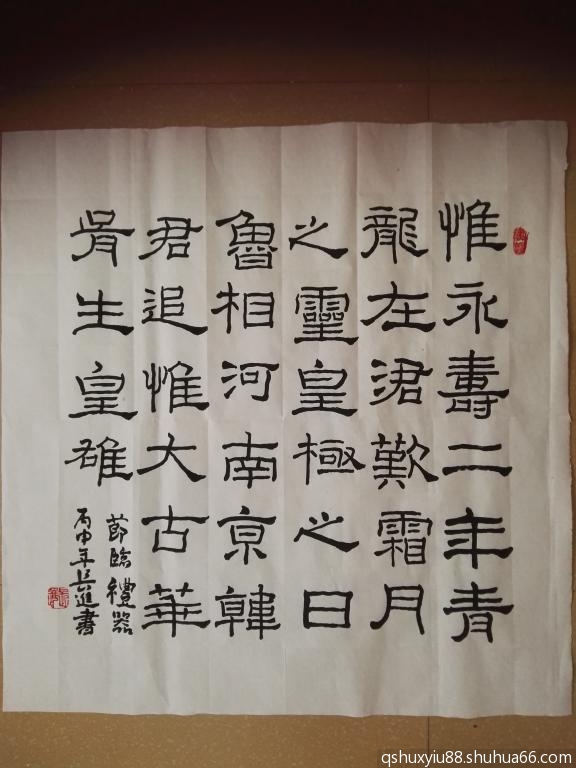 惟永壽二年青
龍在涒歎霜月
之靈皇極之日
魯相河南京韓
君追惟大古華
胥生皇雄
節臨禮器
丙申年進書
qshuxyiu88.shuhua66.com